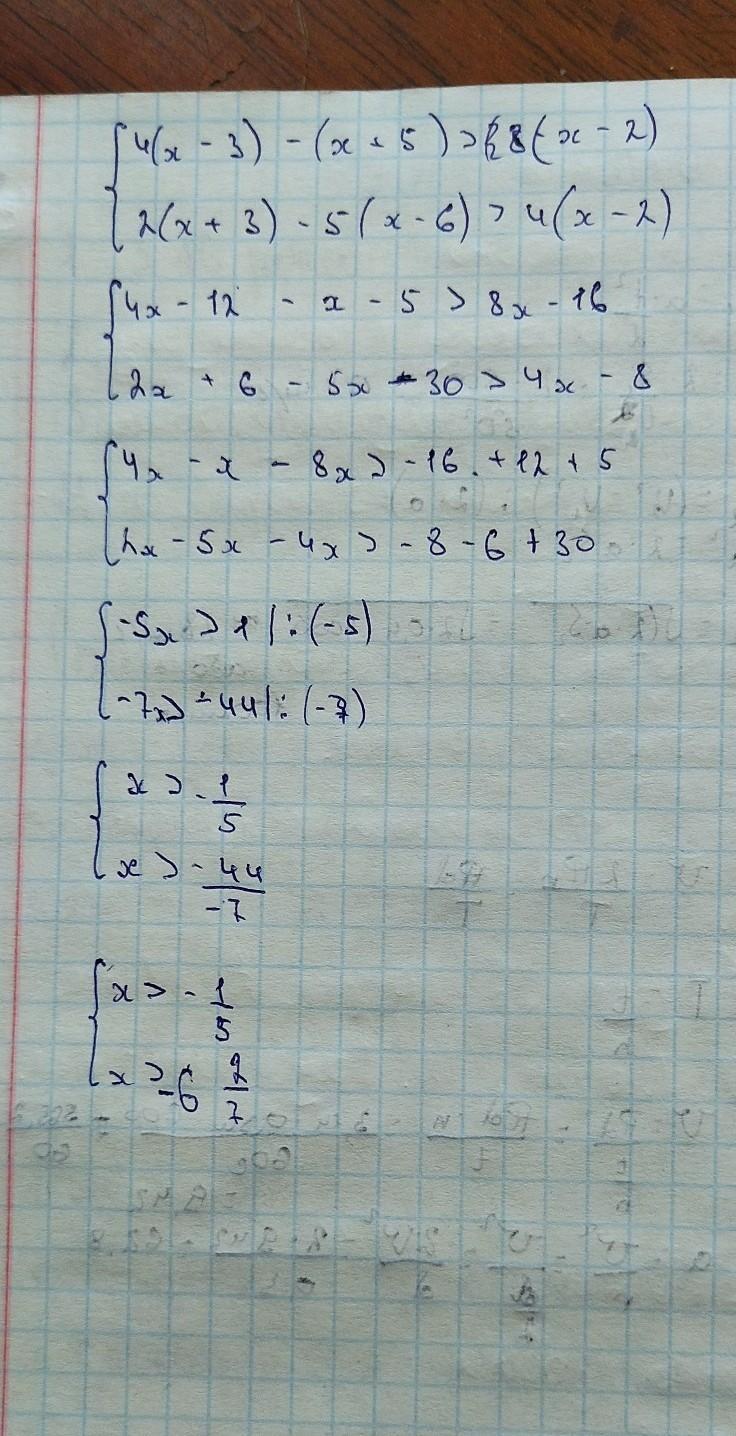 4(x - 3) - (x + 5) > 8(x - 2)
2(x + 3) - 5(x - 6) > 4(x - 2)
4x - 12 - x - 5 > 8x - 16
2x + 6 - 5x - 30 > 4x - 8
4x - x - 8x > -16 + 12 + 5
2x - 5x - 4x > -8 - 6 + 30
-5x > 1 | : (-5)
-7x > -44 | : (-7)
x > - 1/5
x > - 44/-7
x > - 1/5
x > -6 2/7